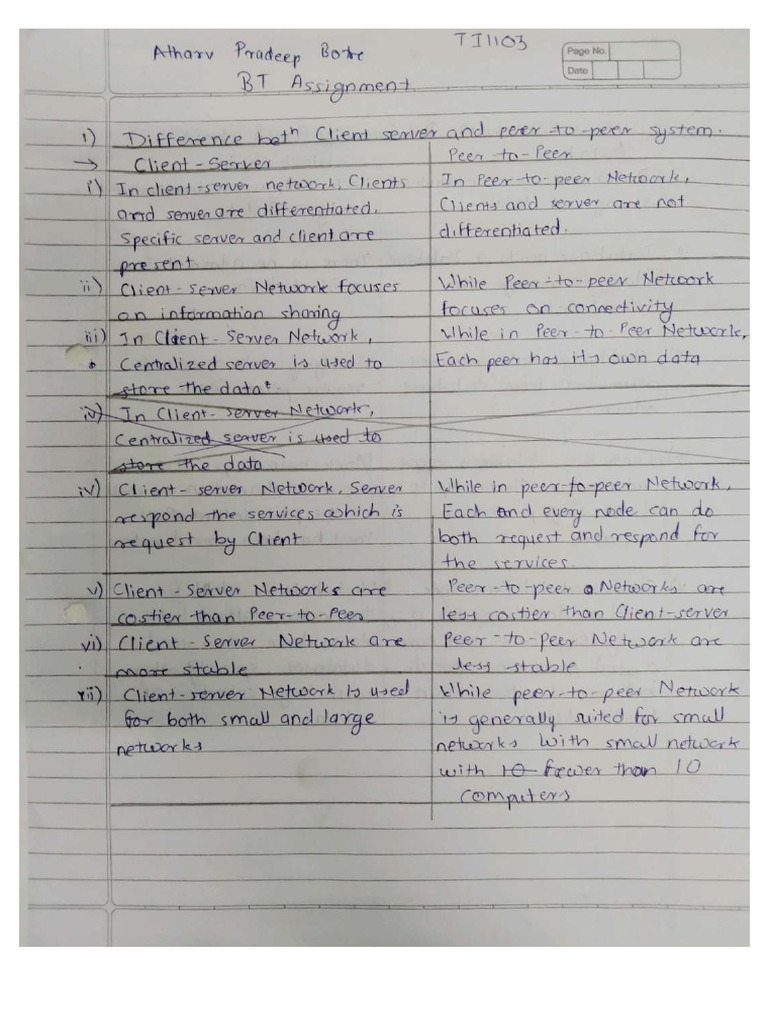 Atharv Pradeep Botre
TI1103
Page No.
Date
BT Assignment.
1) Difference betⁿ Client server and peer-to-peer system.
→ Client-Server
Peer-to-Peer
i) In client-server network, Clients
and server are differentiated.
Specific server and client are
present
In Peer-to-peer Network,
Clients and server are not
differentiated.
ii) Client-server Network focuses
on information sharing
While Peer-to-peer Network
focuses on connectivity
iii) In Client-Server Network,
Centralized server is used to
store the data
While in Peer-to-Peer Network,
Each peer has its own data
iv) In Client-server Network,
Centralized server is used to
store the data
iv) Client-server Network, Server
respond the services which is
request by Client
While in peer-to-peer Network,
Each and every node can do
both request and respond for
the services.
v) Client-Server Networks are
costier than Peer-to-Peer
Peer-to-peer Networks are
less costier than Client-server
vi) Client-Server Network are
more stable
Peer-to-peer Network are
less stable
vii) Client-server Network is used
for both small and large
networks
While peer-to-peer Network
is generally suited for small
networks with small network
with 10 fewer than 10
computers